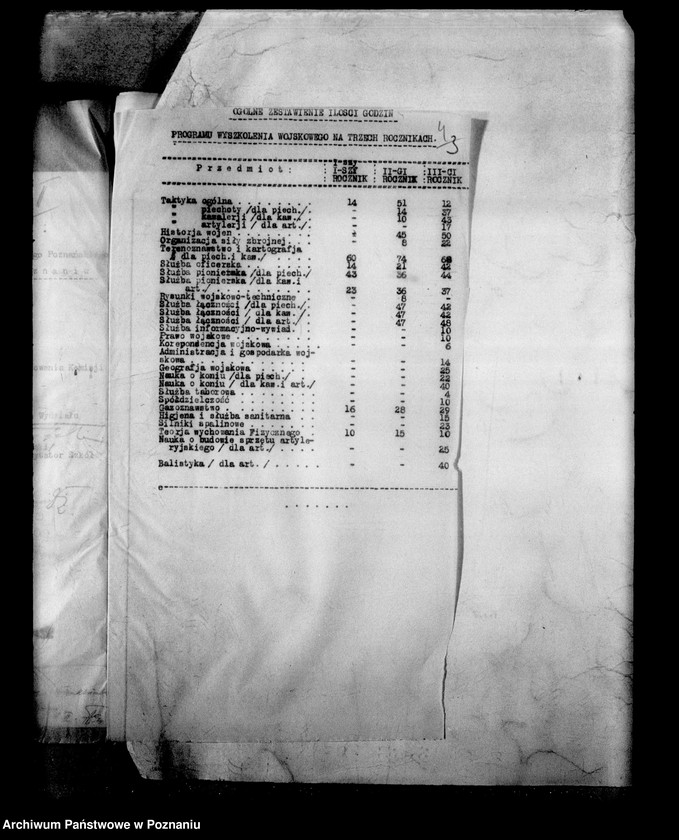 OGÓLNE ZESTAWIENIE ILOŚCI GODZIN
PROGRAMU WYSZKOLENIA WOJSKOWEGO NA TRZECH ROCZNIKACH.
4/3
Przedmiot: : I-SZY ROCZNIK : II-GI ROCZNIK : III-CI ROCZNIK
Taktyka ogólna . . . . . . . 14 51 12
" piechoty /dla piech./. - 14 37
" kawalerji / dla kaw./. - 10 43
" artylerji / dla art./ - - 17
Historja wojen . . . . . . . 45 50
Organizacja siły zbrojnej . . . - 8 22
Terenoznawstwo i kartografja
/ dla piech.i kaw./ . . . . . 60 74
Służba oficerska . . . . . . 14 21 42
Służba pionierska /dla piech./ 43 36 44
Służba pionierska /dla kaw.i
art./ . . . . . . . . 23 36 37
Rysunki wojskowo-techniczne . . - 8 -
Służba łączności /dla piech./ . - 47 42
Służba łączności / dla kaw./ . - 47 42
Służba łączności / dla art./ . - 47 48
Służba informacyjno-wywiad. . . - - 10
Prawo wojskowe . . . . . . - - 10
Korepondencja wojskowa . . . . - - 6
Administracja i gospodarka woj-
skowa . . . . . . . . . - - 14
Geografja wojskowa . . . . . - - 25
Nauka o koniu /dla piech./ . . - - 22
Nauka o koniu / dla kaw.i art./ - - 40
Służba taborowa . . . . . . - - 4
Spółdzielczość . . . . . . - - 10
Gazoznawstwo . . . . . . . 16 28 29
Higjena i służba sanitarna . . - - 15
Silniki spalinowe . . . . . - - 23
Teorja wychowania Fizycznego . 10 15 10
Nauka o budowie sprzętu artyle-
ryjskiego / dla art./ . . . . - - 25
Balistyka / dla art. / . . . . . - - 40
. . . . . . .
Archiwum Państwowe w Poznaniu